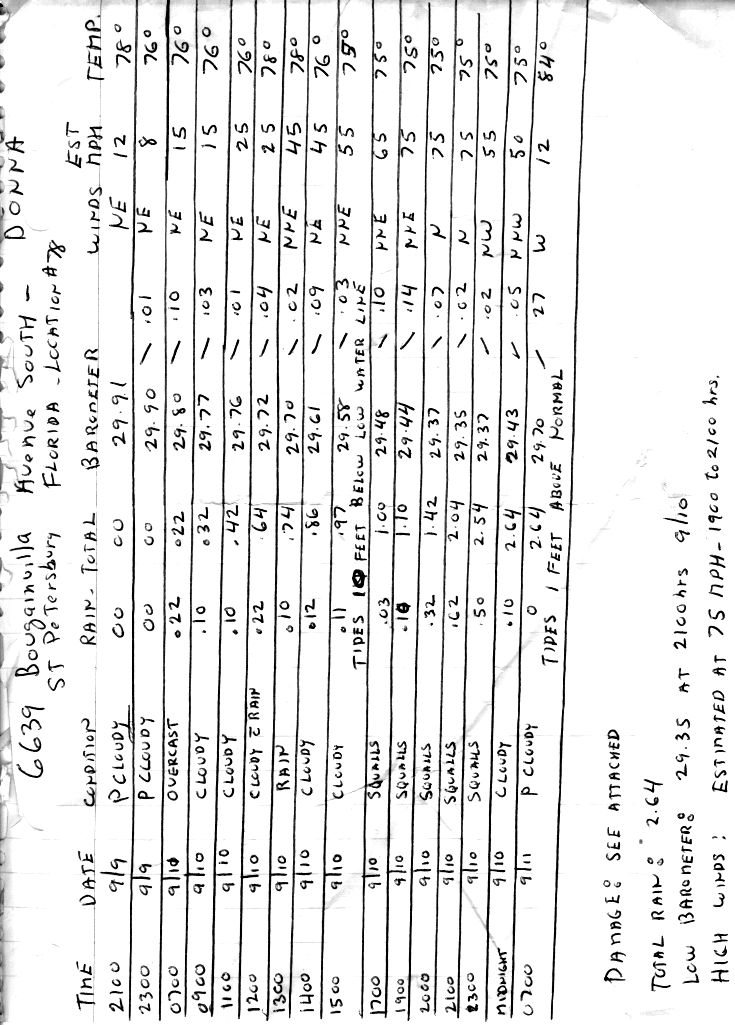 6639 Bougainvilla Avenue SOUTH - DONNA
ST PETersburg FLORIDA - LOCATION #78
TIME DATE CONDITION RAIN-TOTAL BAROMETER WINDS EST MPH TEMP.
2100 9/9 P CLOUDY 00 00 29.91 NE 12 78°
2300 9/9 P CLOUDY 00 00 29.90 - .01 NE 8 76°
0700 9/10 OVERCAST .022 .022 29.80 - .10 NE 15 76°
0900 9/10 CLOUDY .10 .032 29.77 - .03 NE 15 76°
1100 9/10 CLOUDY .10 .42 29.76 - .01 NE 25 76°
1200 9/10 CLOUDY C RAIN .022 .64 29.72 - .04 NE 25 78°
1300 9/10 RAIN .010 .74 29.70 - .02 NNE 45 78°
1400 9/10 CLOUDY .012 .86 29.61 - .09 NE 45 76°
1500 9/10 CLOUDY .011 .97 29.58 - .03 NNE 55 75°
TIDES 10 FEET BELOW LOW WATER LINE
1700 9/10 SQUALLS .03 1.00 29.48 - .10 NNE 65 75°
1900 9/10 SQUALLS .10 1.10 29.44 - .14 NNE 75 75°
2000 9/10 SQUALLS .32 1.42 29.37 - .07 N 75 75°
2100 9/10 SQUALLS .62 2.04 29.35 - .02 N 75 75°
2300 9/10 SQUALLS .50 2.54 29.37 - .02 NW 55 75°
MIDNIGHT 9/10 CLOUDY .10 2.64 29.43 - .05 NNW 50 75°
0700 9/11 P CLOUDY 0 2.64 29.70 - 27 W 12 84°
TIDES 1 FEET ABOVE NORMAL
DAMAGE: SEE ATTACHED
TOTAL RAIN: 2.64
LOW BAROMETER: 29.35 AT 2100 hrs 9/10
HIGH WINDS: ESTIMATED AT 75 MPH - 1900 to 2100 hrs.